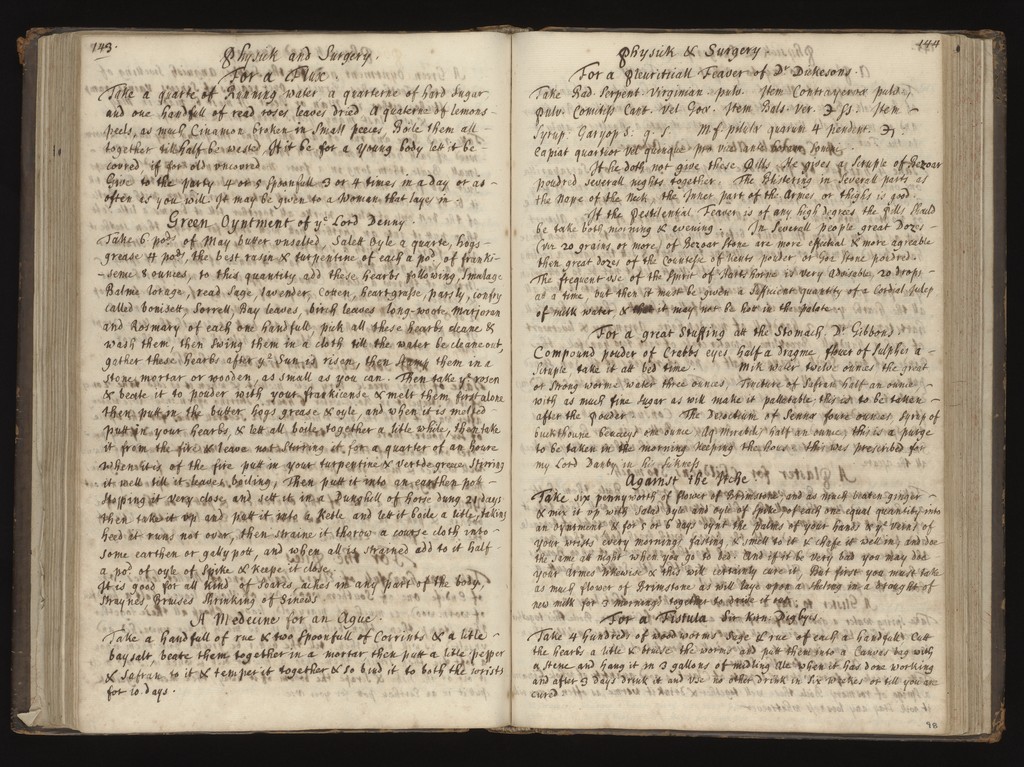 143.
Physick and Surgery.
For a Flux.
Take a quarte of Running water a quarterne of hard Sugar
and one handfull of read roses leaves dried A quaterne of lemons-
peels, as much Cinamon broken in Small peeces, Boile them all
together till halfe be wested If it be for a young body lett it be
covred if for old uncovred
Give to the party 4 or 5 Spoonfull 3 or 4 times in a day or as-
often as you will. It may be given to a Woman that layes in.
Green Oyntment of ye Lord Denny.
Take 6 pod. of May butter unsalted, Salett Oyle a quarte, hogs-
grease 4 pod. the best rasin & turpentine of each a pod. of franki-
-seme 8 ounces, to this quantity add these hearbs following, Smalage
Balme lovage, read Sage, lavender, Cotten, heartgrasse, parsly, comfry
called bonisett, Sorrell, Bay leaves, birch leaves long-worte, Marjoran
and Rosmary of each one handfull, pick all these hearbs cleane &
wash them, then Swing them in a cloth till the water be cleane out,
gather these hearbs after ye Sun is risen, then Stamp them in a
Stone mortar or wooden, as small as you can. Then take ye rosen
& beate it to pouder with your frankicense & melt them first alone
then putt in the butter, hogs grease & oyle, and when it is molted
putt in your hearbs, & lett all boile together a litle while, then take
it from the fire & leave not Stirring it for a quarter of an houre
When it is of the fire putt in your turpentine & verdegreece, Stiring
it well till it leaves boiling, Then putt it into an earthen pott
Stopping it very close and sett it in a Dunghill of horse dung 21 days
then take it up and putt it into a Ketle and lett it boile a litle, taking
heed it runs not over, then straine it throrow a course cloth into
Some earthen or gallypott, and when all is strained add to it half
a pod. of oyle of Spike & keepe it close.
It is good for all kind of Soares, aches in any part of the body,
Straynes, Bruises Shrinking of Sineds
A Medecine for an Ague.
Take a handfull of rue & two Spoonfull of Corrints & a litle
baysalt, beate them together in a mortar then putt a litle pepper
& Safran to it & temper it together & So bind it to both the wrists
for 10 days.
144
Physick & Surgery.
For a Pleuriticall Feaver of Dr. Dickesons.
Take Rad. Serpent Virginian. pulv. Item Contrayervæ pulv.
Pulv. Comitiss Cant. vel Goæ. Item Bals. Ver. ℈ ss. Item
Syrup. Garyop S: q. s. M. f. pilulæ quarum 4 pendent. ℈j
Capiat quartuor vel quinque pro vice ante
If he doth not give these Pills, He gives a Scruple of Bezoar
poudred Severall nights together. The Blistering in Severall parts as
the Nape of the Neck the inner part of the Armes, or thighs is good.
If the Pestilential Feaver is of any high degrees the Pills Should
be take both morning & evening. In Severall people great Dozes
(viz 20 grains or more) of Bezoar Stone are more effectual & more agreable
then great dozes of the Countesse of Kents pouder or Goa Stone poudred.
The frequent use of the Spirit of Hartshorne is very advisable, 20 drops
at a time, but then it must be given a Sufficient quantity of a Cordial Julep
of milk water & that it may not be hott in the palate.
For a great Stuffing att the Stomach, Dr. Gibbons
Compound pouder of Crabbs eyes half a dragme flower of Sulpher a
Scruple, take it at bed time. Milk water twelve ounces the great
or Strong worme water three ounces, Tincture of Safran half an ounce,
with as much fine Sugar as will make it palletable, this is to be taken
after the pouder The Decoctium of Senna foure ounces Syrup of
buckthorne one ounce Aq Mirabilis half an ounce, this is a purge
to be taken in the morning keeping the house this was prescribed for
my Lord Danby in his Sickness
Against the Itche
Take six pennyworth of flower of Brimstone, and as much beaten ginger
& mix it up with Salad Oyle and oyle of Spike of each one equal quantity into
an oyntment & for 5 or 6 days oynt the Palms of your hands & ye veins of
your wrists every morning fasting & smell to it & chafe it well in, and doe
the same at night when you go to bed. And if it be very bad you may doe
your Armes likewise & this will certainly cure it, But first you must take
as much flower of Brimstone as will laye upon a Sheling in a draught of
new milk for 3 mornings together to drive it out
For a Fistula Sir Ken. Digbys
Take 4 hundreds of wood worms Sage & rue of each a handfull Cutt
the hearbs a litle & bruise the worms and putt them into a Canvas bag with
a Stone and hang it in 3 gallons of midling Ale when it has done working
and after 9 days drink it and use no other drink in Six weekes or till you are
cured.
98